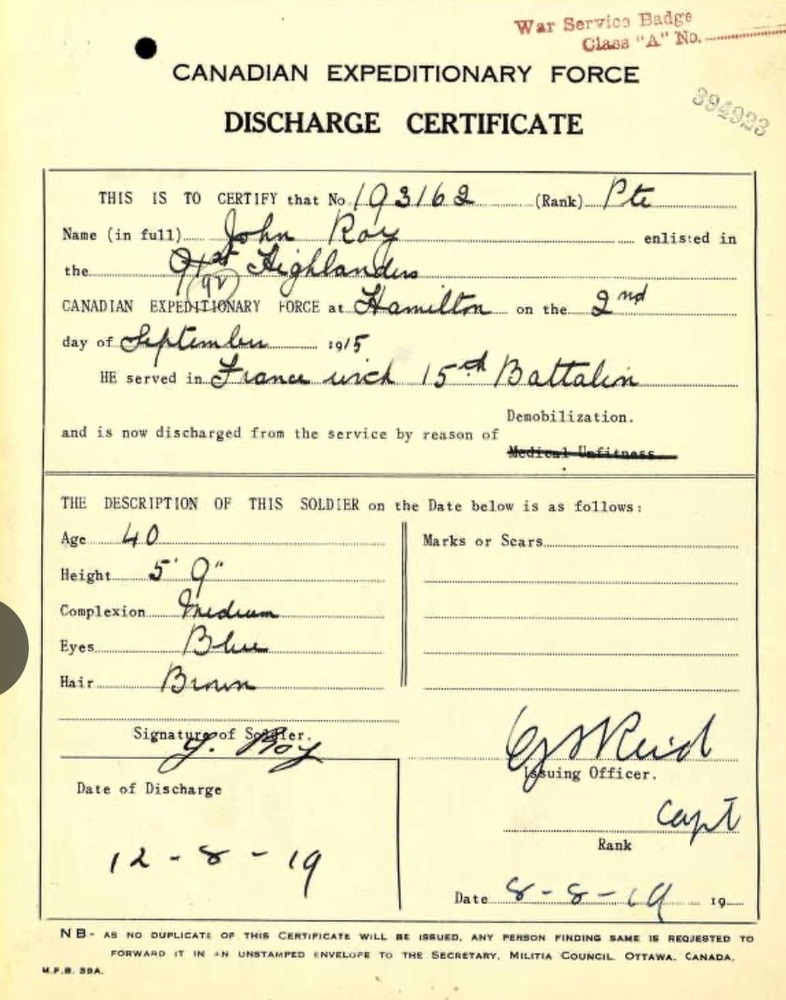 War Service Badge
Class "A" No.
CANADIAN EXPEDITIONARY FORCE
394923
DISCHARGE CERTIFICATE
THIS IS TO CERTIFY that No 193162 (Rank) Pte
Name (in full) John Roy enlisted in
the 91st Highlanders
(92)
CANADIAN EXPEDITIONARY FORCE at Hamilton on the 2nd
day of September 1915
HE served in France with 15th Battalion
Demobilization.
and is now discharged from the service by reason of
Medical Unfitness.
THE DESCRIPTION OF THIS SOLDIER on the Date below is as follows:
Age 40
Marks or Scars
Height 5' 9"
Complexion Medium
Eyes Blue
Hair Brown
Signature of Soldier.
J. Roy
Reid
Issuing Officer.
Date of Discharge
Capt
Rank
12-8-19
Date 8-8-19 19
NB- AS NO DUPLICATE OF THIS CERTIFICATE WILL BE ISSUED, ANY PERSON FINDING SAME IS REQUESTED TO
FORWARD IT IN AN UNSTAMPED ENVELOPE TO THE SECRETARY, MILITIA COUNCIL. OTTAWA, CANADA.
M.F.B. 39A.